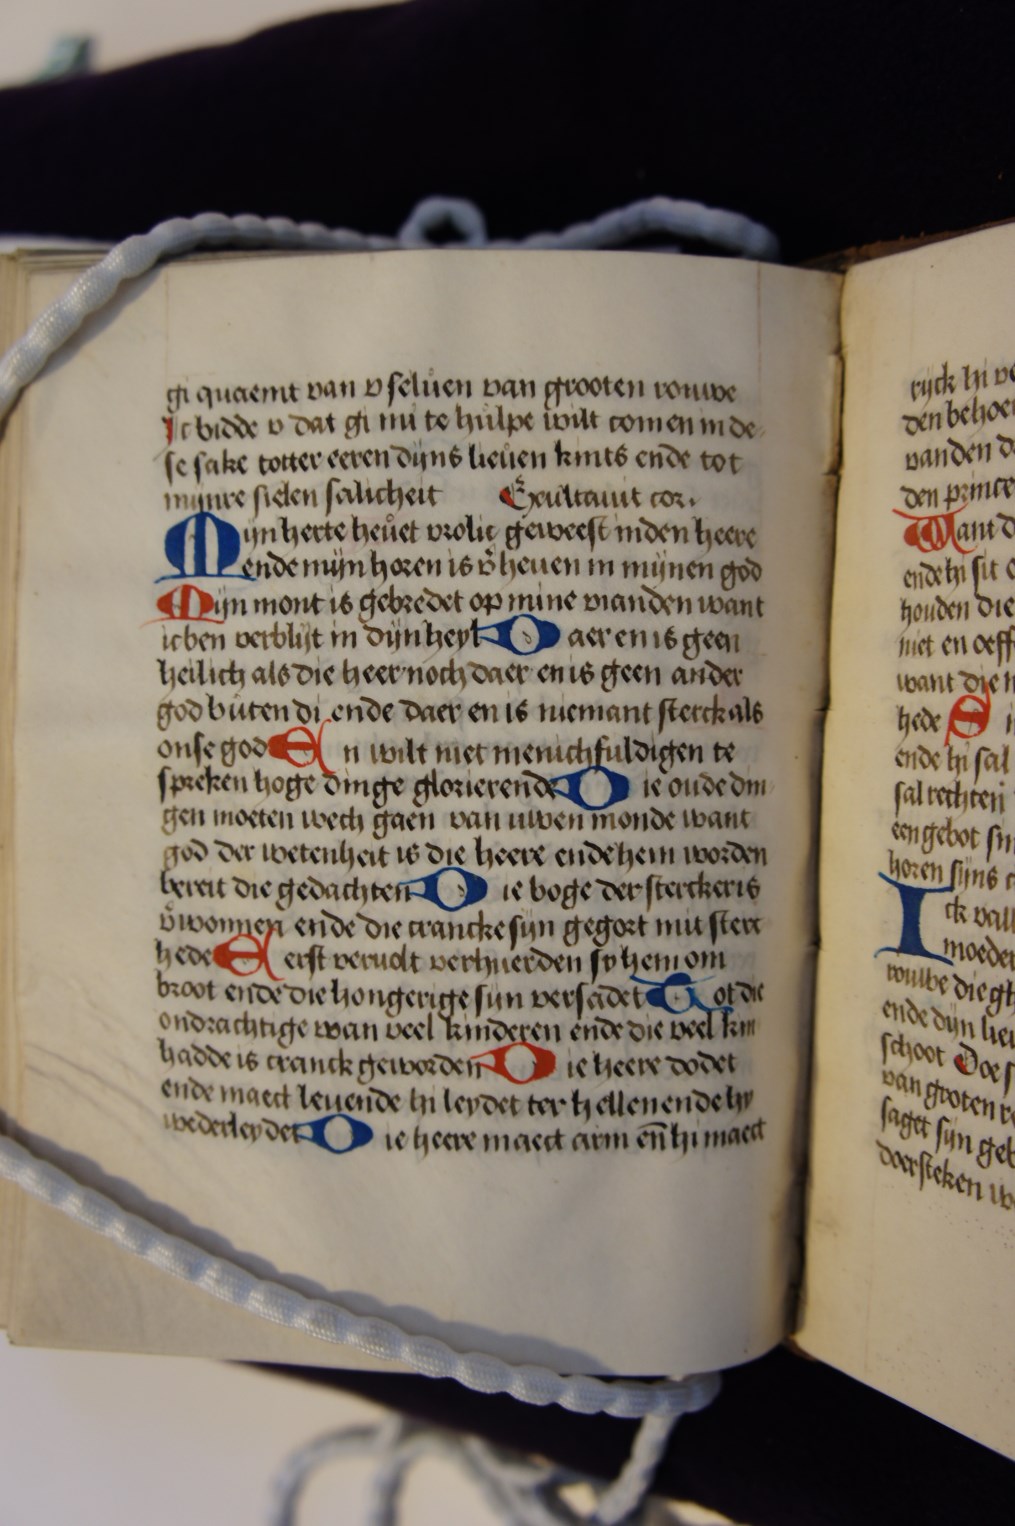 gi quaemt van v seluen van grooten rouwe
Ic bidde v dat gi mi te hulpe wilt comen in de
se sake totter eeren dijns lieuen kints ende tot
mijnre sielen salicheit Exultauit cor.
Mijn herte heuet vrolic geweest inden heere
ende mijn horen is v̓heuen in mijnen god
Mijn mont is gebredet op mine vianden want
ic ben verblijt in dijn heyl Daer en is geen
heilich als die heer noch daer en is geen ander
god buten di ende daer en is niemant sterck als
onse god En wilt niet menichfuldigen te
spreken hoge dinge glorierende Die oude din
gen moeten wech gaen van uwen monde want
god der wetenheit is die heere ende hem worden
bereit die gedachten Die boge der stercker is
v̓wonnen ende die crancke sijn gegort mit sterc
hede Eerst vervult verhuerden sy hem om
broot ende die hongerige sijn versadet Tot die
ondrachtige wan veel kinderen ende die veel kin
hadde is cranck geworden Die heere dodet
ende maect leuende hi leydet ter hellen ende hy
wederleydet Die heere maect arm en̄ hi maect
rijck hi
den behoe
van den d
den prince
Want d
ende hi sit
houden die
niet en oeff
want die n
hede E
ende hi sal
sal rechten
een gebot sin
horen sijns
Ick vall
moeder
rouwe die gh
ende dijn lieu
schoot Doe s
van groten r
saget sijn geb
doersteken w